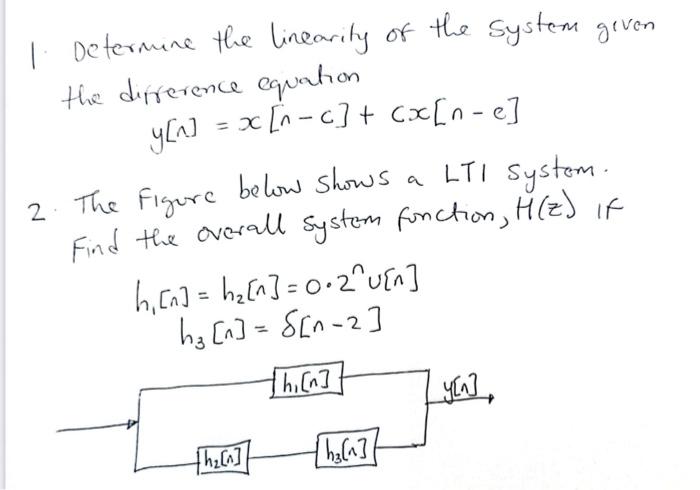 1. Determine the linearity of the system given
the difference equation
y[n] = x[n-c] + cx[n-e]
2. The Figure below shows a LTI system.
Find the overall system function, H(z) if
h₁[n] = h₂[n] = 0.2ⁿ u[n]
h₃[n] = δ[n-2]
h₁[n]
y[n]
h₂[n]
h₃[n]